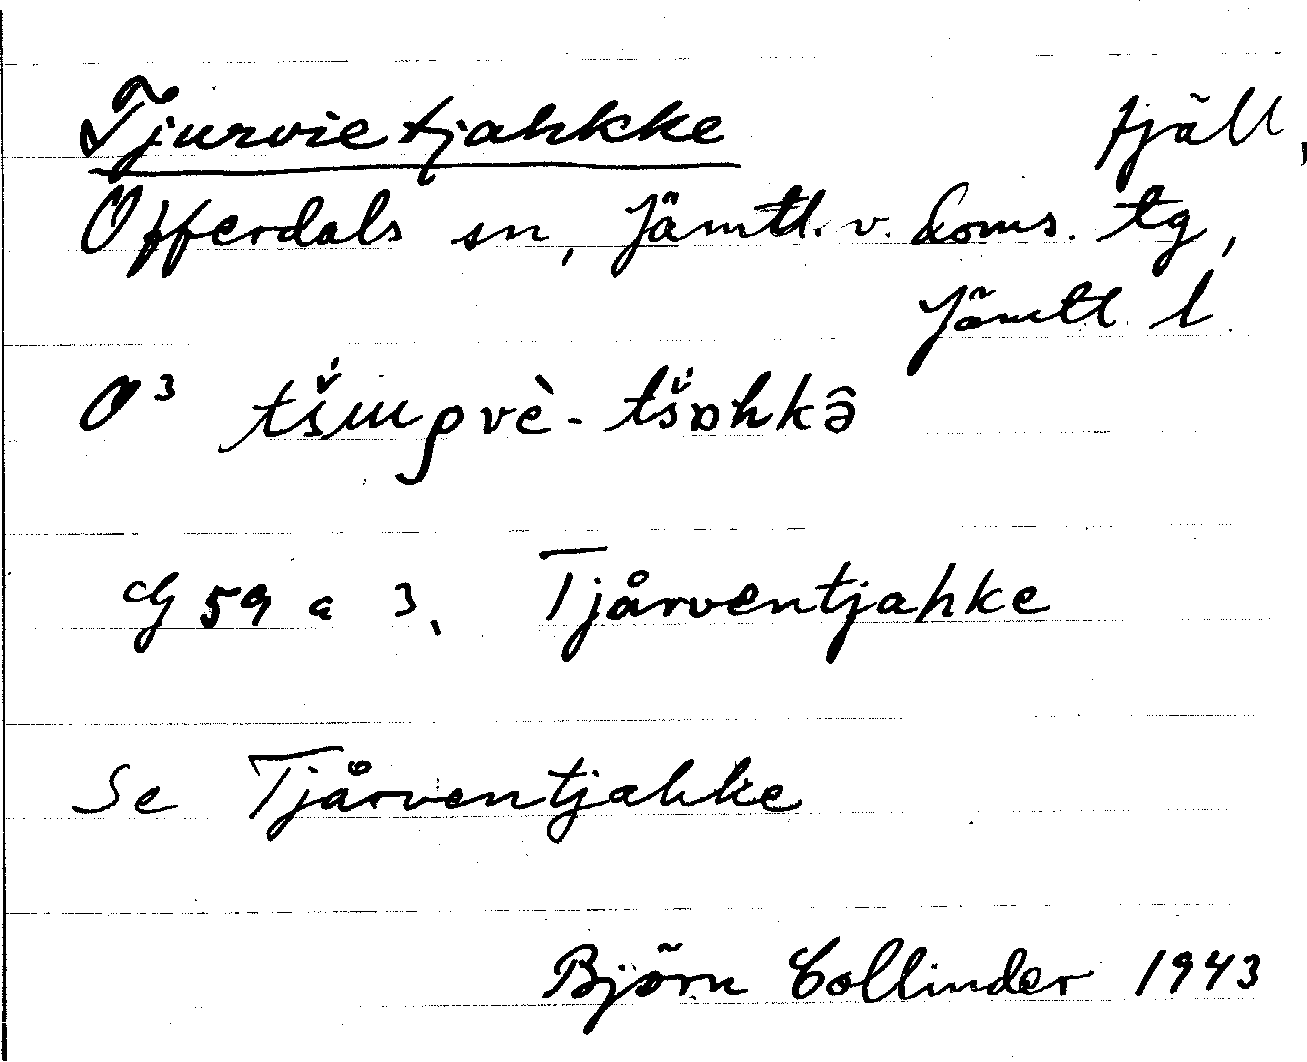 Tjurvietjahkke fjäll,
Offerdals sn, Jämtl. v. doms. tg,
Jämtl. l.
O³ tš́ɯρvè-tš́ɒhkə̂
G 59 a 3. Tjårventjahke
Se Tjårventjahke
Björn Collinder 1943